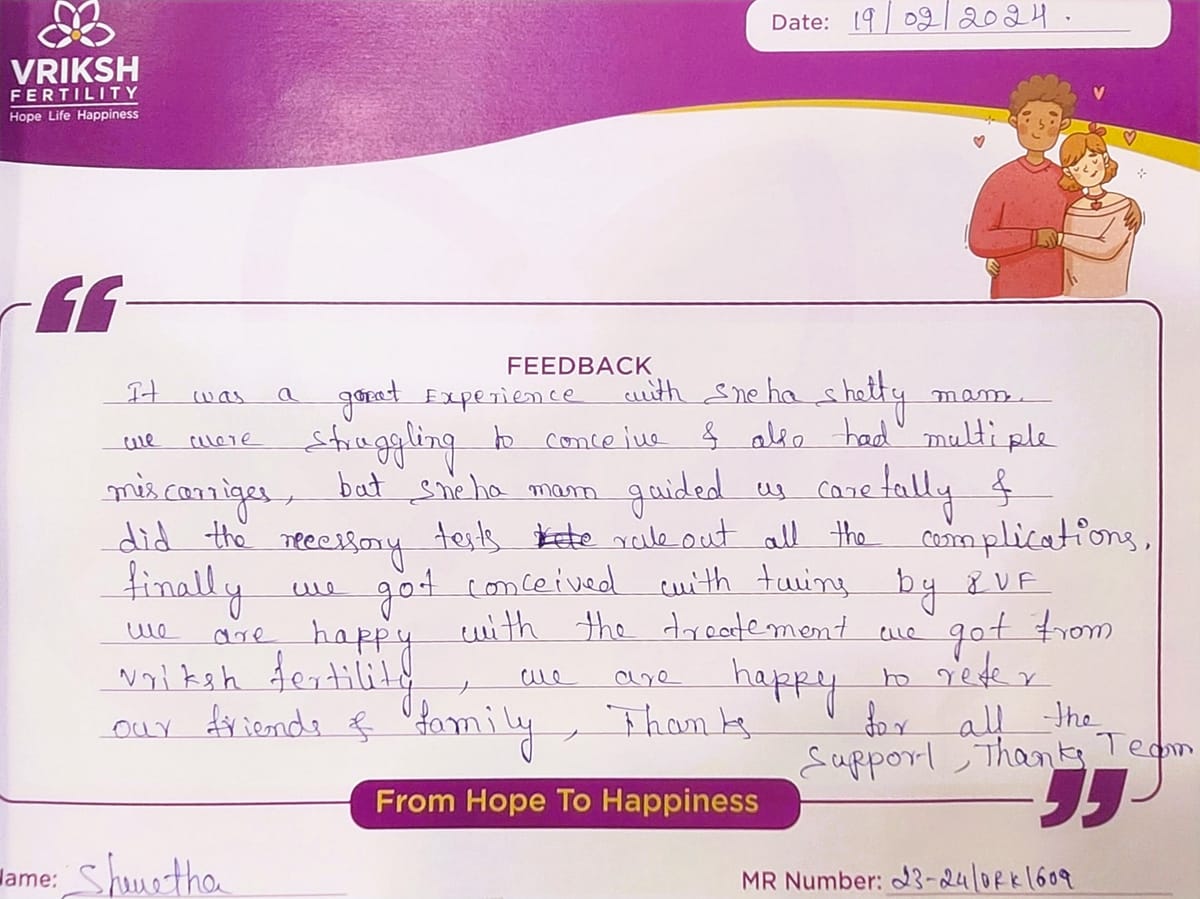 VRIKSH
FERTILITY
Hope Life Happiness
Date: 19/02/2024.
FEEDBACK
It was a great Experience with Sneha Shetty mam.
we were struggling to conceive & also had multiple
miscarriges, but Sneha mam guided us carefully &
did the necessory tests rule out all the complications.
finally we got conceived with twins by IVF
we are happy with the treatement we got from
Vriksh fertility, we are happy to refer
our friends & family, Thanks for all the
Support, Thanks Team
From Hope To Happiness
Name: Shwetha
MR Number: 23-24/ /609